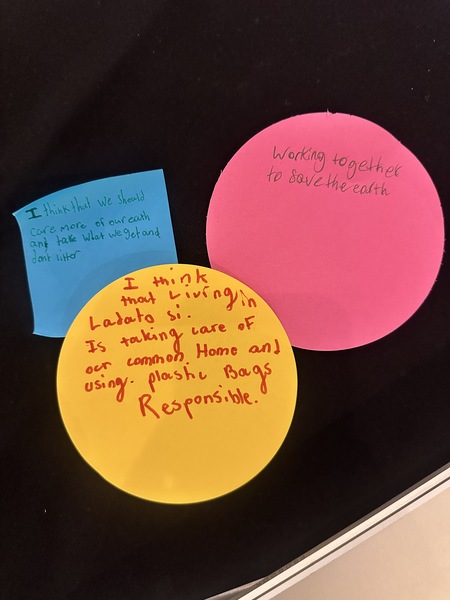 I think that we should
care more of our eath
and take what we get and
dont litter
Working together
to save the earth
I think
that Living in
Ladato si.
Is taking care of
our common Home and
using. plastic Bags
Responsible.